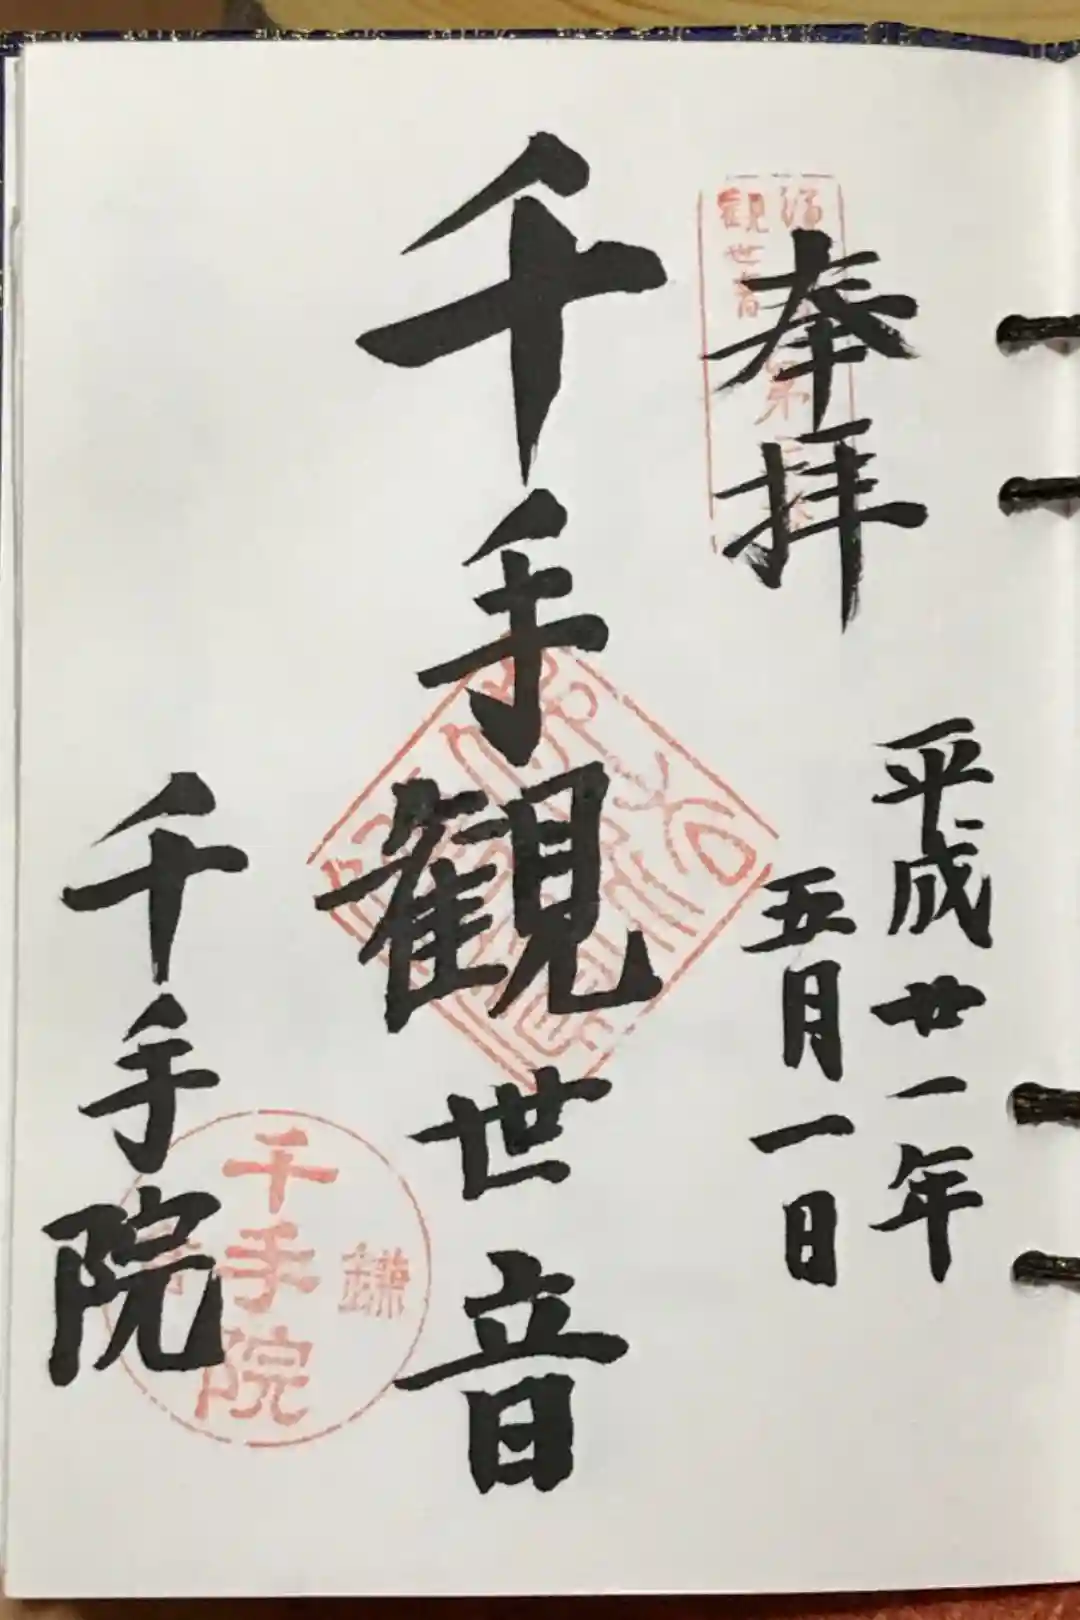 奉拝
平成廿一年
五月一日
千手観世音
千手院
観世音
第
千手院
鎌